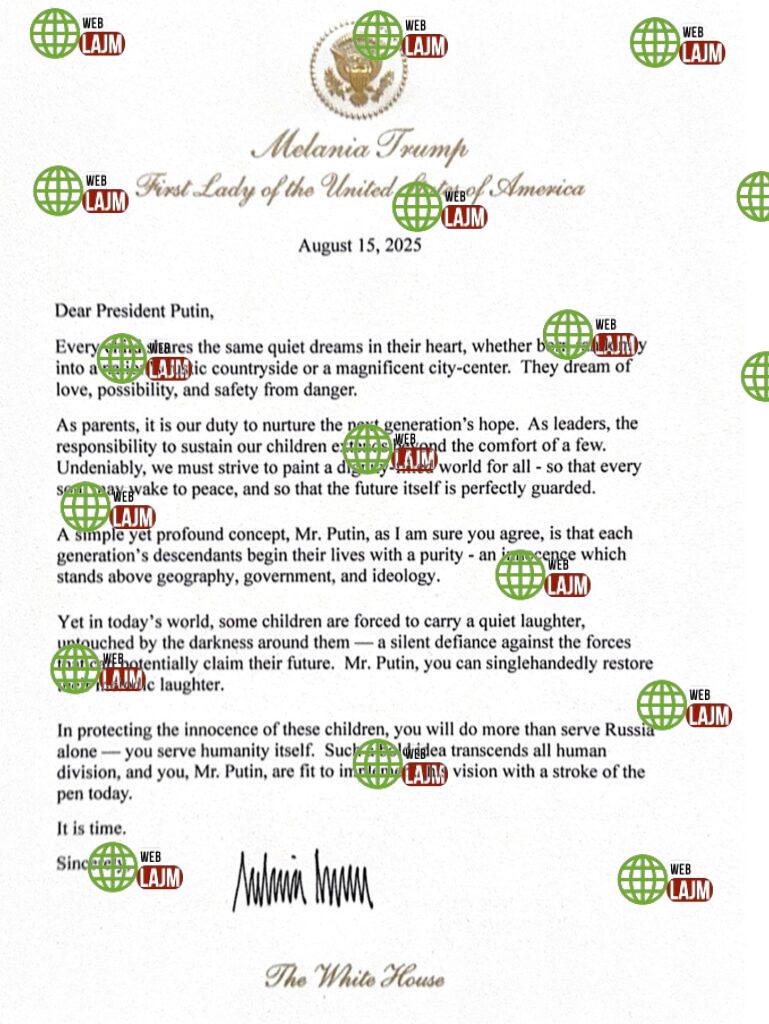 Melania Trump
First Lady of the United States of America
August 15, 2025
Dear President Putin,
Every child shares the same quiet dreams in their heart, whether born randomly
into a rustic countryside or a magnificent city-center. They dream of
love, possibility, and safety from danger.
As parents, it is our duty to nurture the next generation's hope. As leaders, the
responsibility to sustain our children extends beyond the comfort of a few.
Undeniably, we must strive to paint a dignity-filled world for all - so that every
soul may wake to peace, and so that the future itself is perfectly guarded.
A simple yet profound concept, Mr. Putin, as I am sure you agree, is that each
generation's descendants begin their lives with a purity - an innocence which
stands above geography, government, and ideology.
Yet in today's world, some children are forced to carry a quiet laughter,
untouched by the darkness around them — a silent defiance against the forces
that can potentially claim their future. Mr. Putin, you can singlehandedly restore
their melodic laughter.
In protecting the innocence of these children, you will do more than serve Russia
alone — you serve humanity itself. Such a bold idea transcends all human
division, and you, Mr. Putin, are fit to implement this vision with a stroke of the
pen today.
It is time.
Sincerely,
The White House
WEB
LAJM
WEB
LAJM
WEB
LAJM
WEB
LAJM
WEB
LAJM
WEB
LAJM
WEB
LAJM
WEB
LAJM
WEB
LAJM
WEB
LAJM
WEB
LAJM
WEB
LAJM
WEB
LAJM
WEB
LAJM
WEB
LAJM